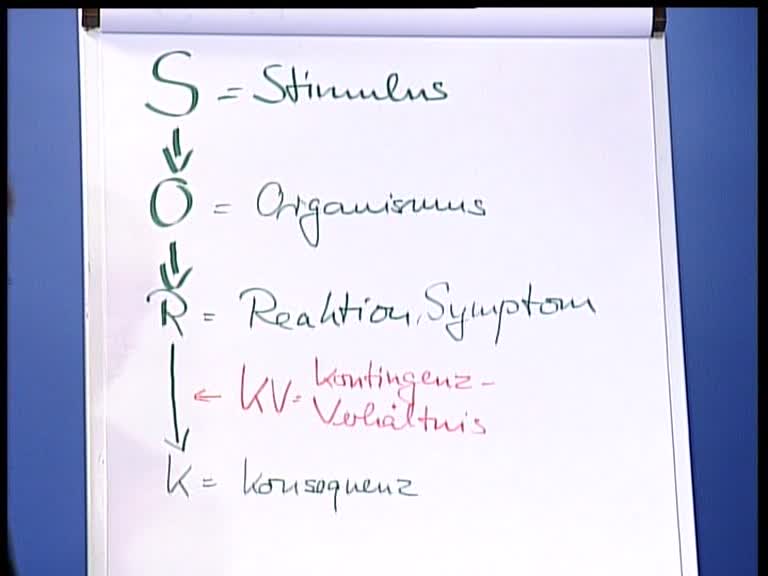 S = Stimulus
O = Organismus
R = Reaktion, Symptom
← KV = Kontingenz-
Verhältnis
K = Konsequenz